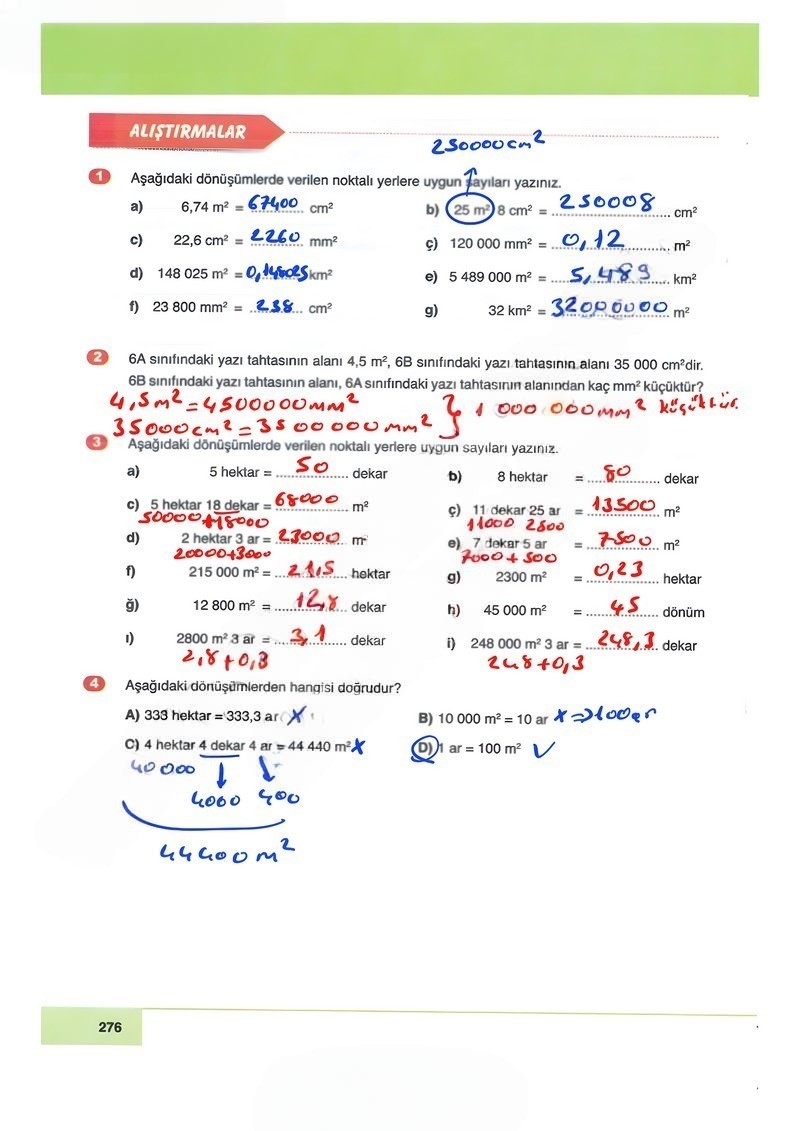 ALIŞTIRMALAR
250000cm²
1 Aşağıdaki dönüşümlerde verilen noktalı yerlere uygun sayıları yazınız.
a) 6,74 m² = 67400 cm² b) 25 m² 8 cm² = 250008 cm²
c) 22,6 cm² = 2260 mm² ç) 120 000 mm² = 0,12 m²
d) 148 025 m² = 0,148025 km² e) 5 489 000 m² = 5,489 km²
f) 23 800 mm² = 238 cm² g) 32 km² = 32000000 m²
2 6A sınıfındaki yazı tahtasının alanı 4,5 m², 6B sınıfındaki yazı tahtasının alanı 35 000 cm²dir.
6B sınıfındaki yazı tahtasının alanı, 6A sınıfındaki yazı tahtasının alanından kaç mm² küçüktür?
4,5m² = 4500000mm² } 1 000 000mm² küçüktür.
35000cm² = 3500000mm²
3 Aşağıdaki dönüşümlerde verilen noktalı yerlere uygun sayıları yazınız.
a) 5 hektar = 50 dekar b) 8 hektar = 80 dekar
c) 5 hektar 18 dekar = 68000 m² ç) 11 dekar 25 ar = 13500 m²
50000+18000 11000 2500
d) 2 hektar 3 ar = 23000 m² e) 7 dekar 5 ar = 7500 m²
20000+3000 7000+500
f) 215 000 m² = 21,5 hektar g) 2300 m² = 0,23 hektar
ğ) 12 800 m² = 12,8 dekar h) 45 000 m² = 45 dönüm
ı) 2800 m² 3 ar = 3,1 dekar i) 248 000 m² 3 ar = 248,3 dekar
2,8+0,3 248+0,3
4 Aşağıdaki dönüşümlerden hangisi doğrudur?
A) 333 hektar = 333,3 ar X B) 10 000 m² = 10 ar X ⇒100ar
C) 4 hektar 4 dekar 4 ar = 44 440 m² X D) 1 ar = 100 m² ✓
40000 ↓ ↓
4000 400
44400m²
276